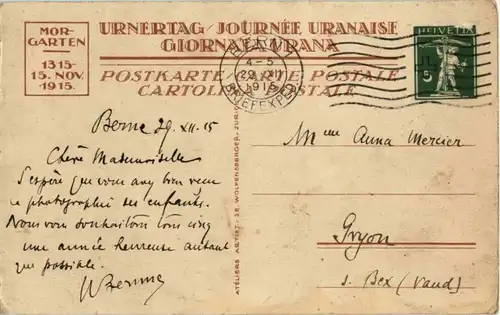 MOR-
GARTEN
1315-
15. NOV.
1915.
URNERTAG / JOURNÉE URANAISE
GIORNATA URANA
POSTKARTE / CARTE POSTALE
CARTOLINA POSTALE
4-5
29 XII
1915
BRIEFEXP.
HELVETIA
5
Berne 29.XII.15
Chère Mademoiselle
J'espère que vous avez bien reçu
la photographie des enfants.
Nous vous souhaitons tous cinq
une année heureuse autant
que possible.
ATELIERS ARTIST. J.E. WOLFENSBERGER, ZURICH
Mme Anna Mercier
Gryon
s. Bex (Vaud)